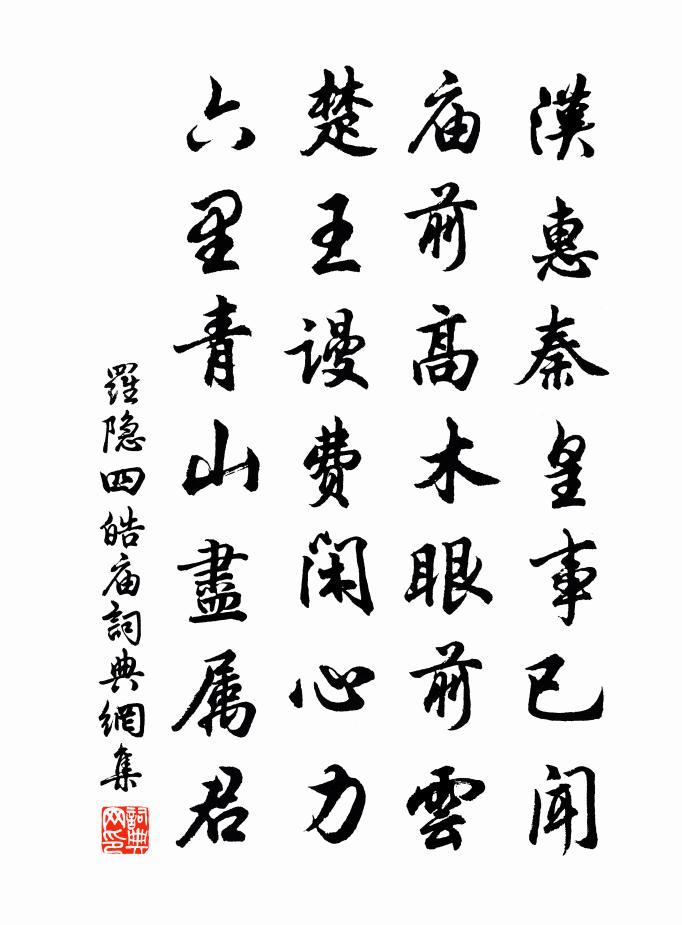 漢惠秦皇事已聞
庙前高木眼前雲
楚王谩費閑心力
六里青山盡属君
羅隐四皓庙詞典網集
詞典网印